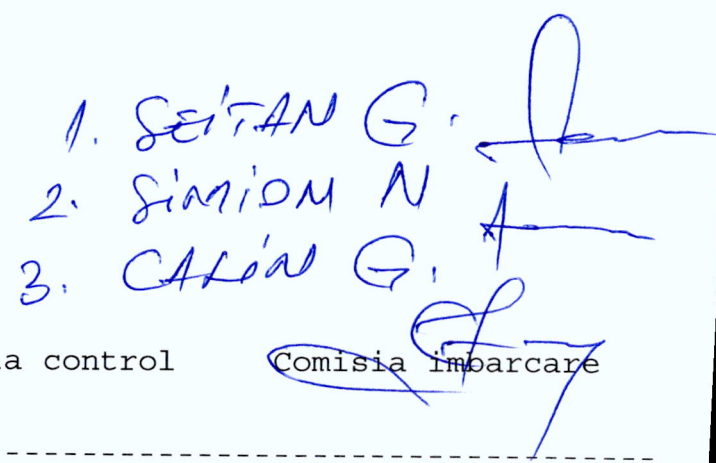 1. SEITAN G.
2. SIMION N
3. CALIN G.
a control Comisia imbarcare